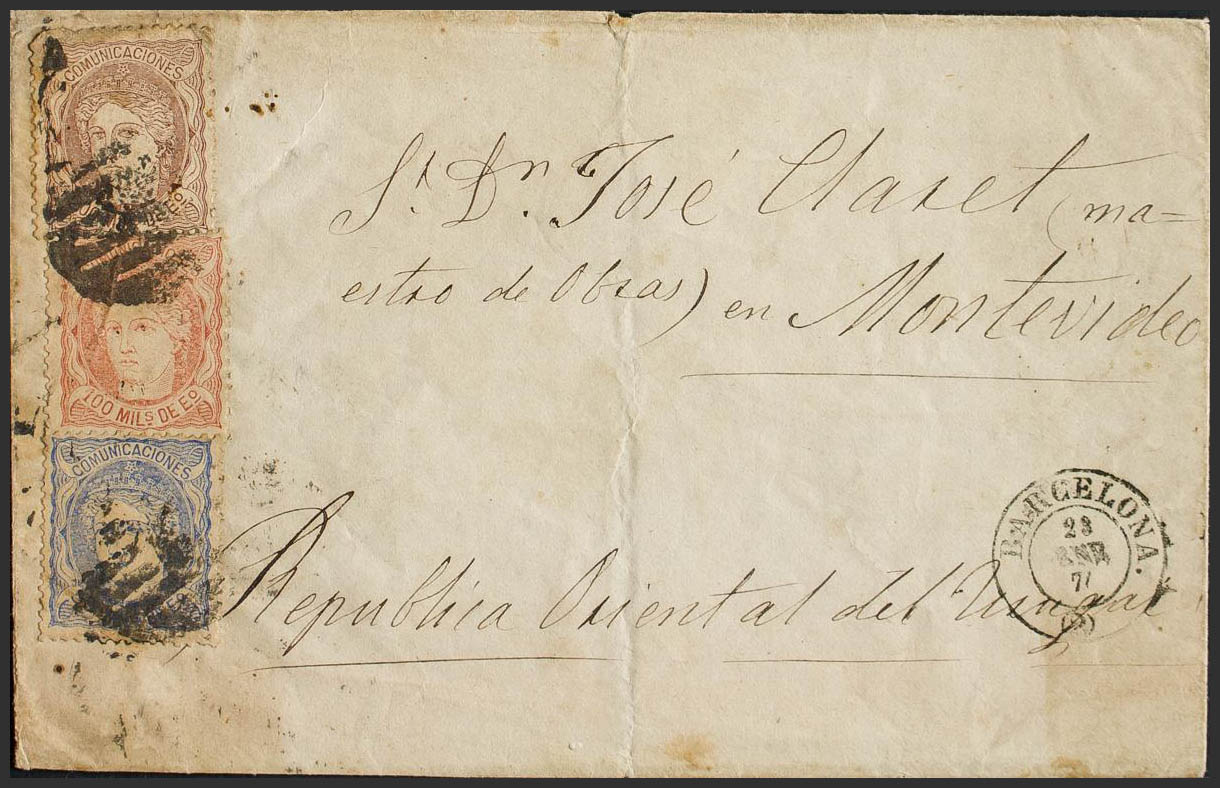 COMUNICACIONES
100 MILS DE EO
COMUNICACIONES
Sr. Dn. José Claret (ma=
estro de Obras) en Montevideo
Republica Oriental del Uruguai
BARCELONA.
23
ENE
71